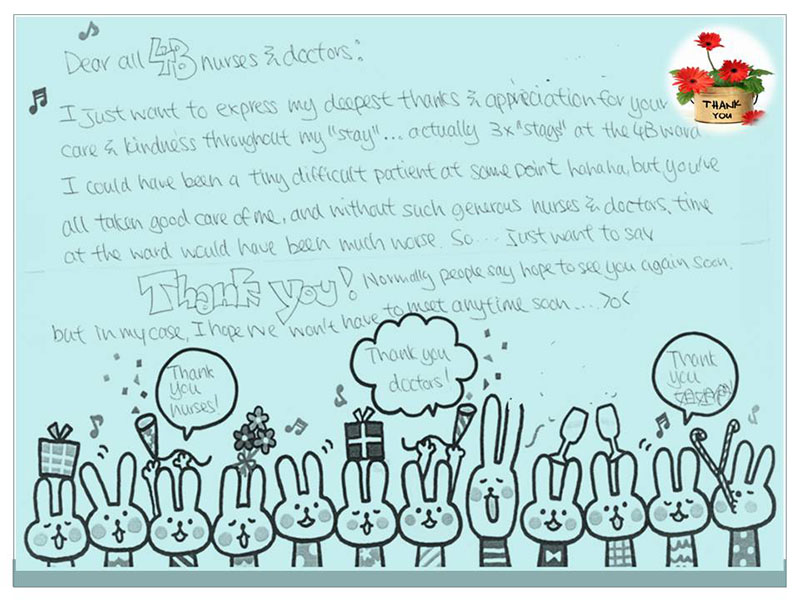 Dear all 4B nurses & doctors:
I just want to express my deepest thanks & appreciation for your
care & kindness throughout my "stay"... actually 3x "stays" at the 4B ward
I could have been a tiny difficult patient at some point hahaha, but you've
all taken good care of me, and without such generous nurses & doctors, time
at the ward would have been much worse. So... Just want to say
Thank you! Normally people say hope to see you again soon,
but in my case, I hope we won't have to meet anytime soon.... >o<
THANK
YOU
Thank
you
nurses!
Thank you
doctors!
Thank
you